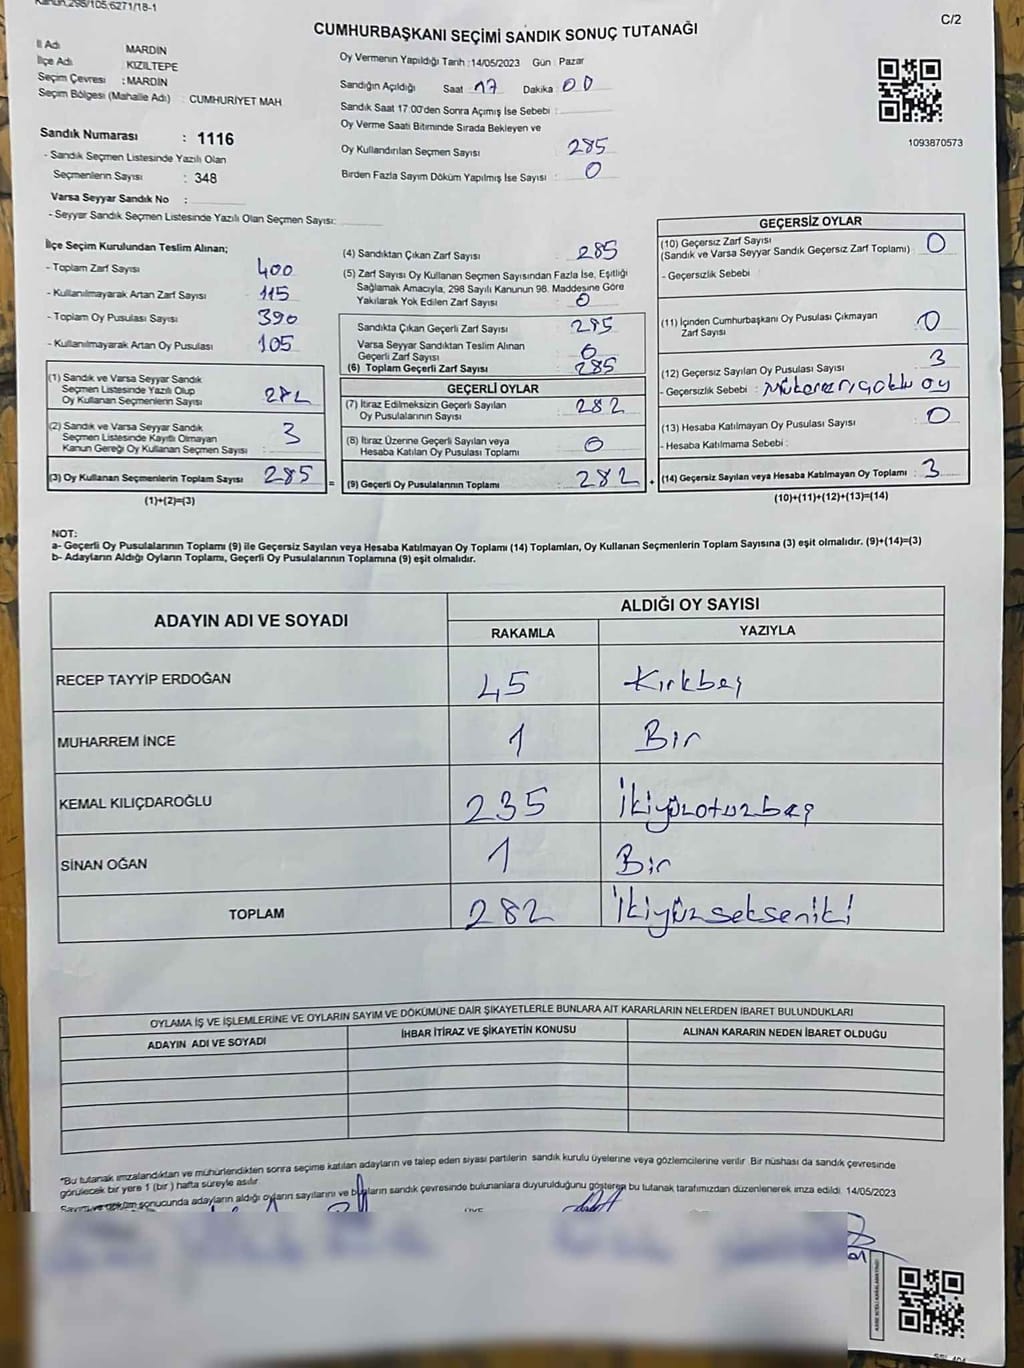 Kanun:298/105,6271/18-1
C/2
CUMHURBAŞKANI SEÇİMİ SANDIK SONUÇ TUTANAĞI
İl Adı MARDİN
İlçe Adı KIZILTEPE
Seçim Çevresi : MARDİN
Seçim Bölgesi (Mahalle Adı) : CUMHURİYET MAH
Sandık Numarası : 1116
- Sandık Seçmen Listesinde Yazılı Olan
Seçmenlerin Sayısı : 348
Varsa Seyyar Sandık No :
- Seyyar Sandık Seçmen Listesinde Yazılı Olan Seçmen Sayısı:
Oy Vermenin Yapıldığı Tarih :14/05/2023 Gün : Pazar
Sandığın Açıldığı Saat 17 Dakika : 00
Sandık Saat 17:00'den Sonra Açımış İse Sebebi :
Oy Verme Saati Bitiminde Sırada Bekleyen ve
Oy Kullandırılan Seçmen Sayısı 285
Birden Fazla Sayım Döküm Yapılmış İse Sayısı : 0
1093870573
İlçe Seçim Kurulundan Teslim Alınan;
- Toplam Zarf Sayısı 400
- Kullanılmayarak Artan Zarf Sayısı 115
- Toplam Oy Pusulası Sayısı 390
- Kullanılmayarak Artan Oy Pusulası 105
(1) Sandık ve Varsa Seyyar Sandık
Seçmen Listesinde Yazılı Olup
Oy Kullanan Seçmenlerin Sayısı 282
(2) Sandık ve Varsa Seyyar Sandık
Seçmen Listesinde Kayıtlı Olmayan
Kanun Gereği Oy Kullanan Seçmen Sayısı 3
(3) Oy Kullanan Seçmenlerin Toplam Sayısı 285 =
(1)+(2)=(3)
(4) Sandıktan Çıkan Zarf Sayısı 285
(5) Zarf Sayısı Oy Kullanan Seçmen Sayısından Fazla İse, Eşitliği
Sağlamak Amacıyla, 298 Sayılı Kanunun 98. Maddesine Göre
Yakılarak Yok Edilen Zarf Sayısı : 0
Sandıkta Çıkan Geçerli Zarf Sayısı 285
Varsa Seyyar Sandıktan Teslim Alınan
Geçerli Zarf Sayısı 0
(6) Toplam Geçerli Zarf Sayısı : 285
GEÇERLİ OYLAR
(7) İtiraz Edilmeksizin Geçerli Sayılan
Oy Pusulalarının Sayısı : 282
(8) İtiraz Üzerine Geçerli Sayılan veya
Hesaba Katılan Oy Pusulası Toplamı : 0
(9) Geçerli Oy Pusulalarının Toplamı : 282 +
GEÇERSİZ OYLAR
(10) Geçersiz Zarf Sayısı
(Sandık ve Varsa Seyyar Sandık Geçersiz Zarf Toplamı) : 0
- Geçersizlik Sebebi :
(11) İçinden Cumhurbaşkanı Oy Pusulası Çıkmayan
Zarf Sayısı 0
(12) Geçersiz Sayılan Oy Pusulası Sayısı : 3
- Geçersizlik Sebebi :
(13) Hesaba Katılmayan Oy Pusulası Sayısı : 0
- Hesaba Katılmama Sebebi :
(14) Geçersiz Sayılan veya Hesaba Katılmayan Oy Toplamı : 3
(10)+(11)+(12)+(13)=(14)
NOT:
a- Geçerli Oy Pusulalarının Toplamı (9) ile Geçersiz Sayılan veya Hesaba Katılmayan Oy Toplamı (14) Toplamları, Oy Kullanan Seçmenlerin Toplam Sayısına (3) eşit olmalıdır. (9)+(14)=(3)
b- Adayların Aldığı Oyların Toplamı, Geçerli Oy Pusulalarının Toplamına (9) eşit olmalıdır.
ADAYIN ADI VE SOYADI ALDIĞI OY SAYISI
RAKAMLA YAZIYLA
RECEP TAYYİP ERDOĞAN 45 Kırkbeş
MUHARREM İNCE 1 Bir
KEMAL KILIÇDAROĞLU 235 İkiyüzotuzbeş
SİNAN OĞAN 1 Bir
TOPLAM 282 İkiyüzsekseniki
OYLAMA İŞ VE İŞLEMLERİNE VE OYLARIN SAYIM VE DÖKÜMÜNE DAİR ŞİKAYETLERLE BUNLARA AİT KARARLARIN NELERDEN İBARET BULUNDUKLARI
ADAYIN ADI VE SOYADI İHBAR İTİRAZ VE ŞİKAYETİN KONUSU ALINAN KARARIN NEDEN İBARET OLDUĞU
*Bu tutanak imzalandıktan ve mühürlendikten sonra seçime katılan adayların ve talep eden siyasi partilerin sandık kurulu üyelerine veya gözlemcilerine verilir. Bir nüshası da sandık çevresinde
görülecek bir yere 1 (bir) hafta süreyle asılır.
Sayım ve döküm sonucunda adayların aldığı oyların sayılarını ve bunların sandık çevresinde bulunanlara duyurulduğunu gösteren bu tutanak tarafımızdan düzenlenerek imza edildi. 14/05/2023